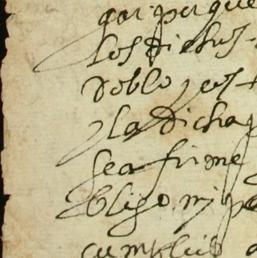 gar porque
los dichos
doblo, es
y la dicha
sea firme
obligo mi pe
cumplido